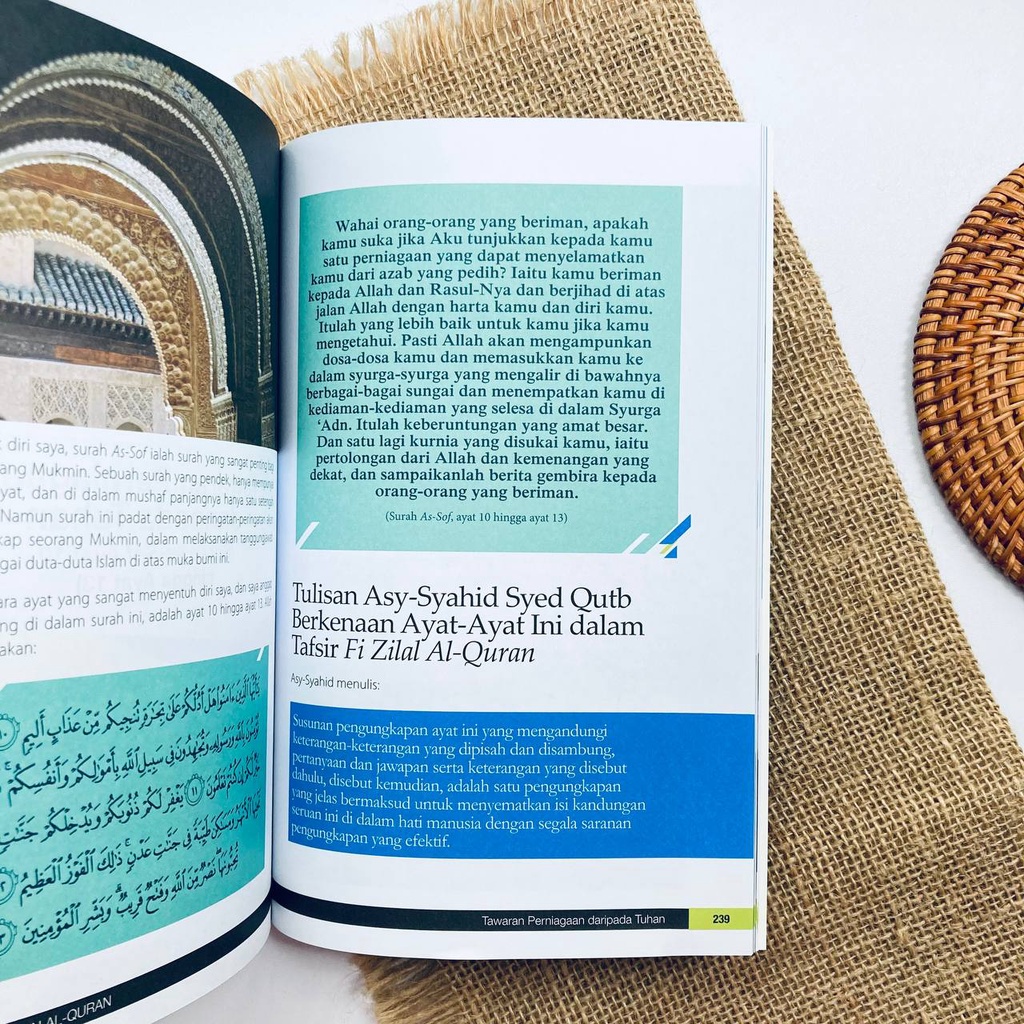 diri saya, surah As-Sof ialah surah yang sangat penting bagi
rang Mukmin. Sebuah surah yang pendek, hanya mempunyai
yat, dan di dalam mushaf panjangnya hanya satu setengah
Namun surah ini padat dengan peringatan-peringatan
kap seorang Mukmin, dalam melaksanakan tanggungjawab
gai duta-duta Islam di atas muka bumi ini.
ara ayat yang sangat menyentuh diri saya, dan saya
ng di dalam surah ini, adalah ayat 10 hingga ayat 13
akan:
ٱلَّذِينَ ءَامَنُوا۟ هَلْ أَدُلُّكُمْ عَلَىٰ تِجَـٰرَةٍ تُنجِيكُم مِّنْ عَذَابٍ أَلِيمٍ
بِٱللَّهِ وَرَسُولِهِۦ وَتُجَـٰهِدُونَ فِى سَبِيلِ ٱللَّهِ بِأَمْوَٰلِكُمْ وَأَنفُسِكُمْ
كُنتُمْ تَعْلَمُونَ ١١ يَغْفِرْ لَكُمْ ذُنُوبَكُمْ وَيُدْخِلْكُمْ جَنَّـٰتٍ
ٱلْأَنْهَـٰرُ وَمَسَـٰكِنَ طَيِّبَةً فِى جَنَّـٰتِ عَدْنٍ ذَٰلِكَ ٱلْفَوْزُ ٱلْعَظِيمُ
تُحِبُّونَهَا نَصْرٌ مِّنَ ٱللَّهِ وَفَتْحٌ قَرِيبٌ وَبَشِّرِ ٱلْمُؤْمِنِينَ
AL-QURAN
Wahai orang-orang yang beriman, apakah
kamu suka jika Aku tunjukkan kepada kamu
satu perniagaan yang dapat menyelamatkan
kamu dari azab yang pedih? Iaitu kamu beriman
kepada Allah dan Rasul-Nya dan berjihad di atas
jalan Allah dengan harta kamu dan diri kamu.
Itulah yang lebih baik untuk kamu jika kamu
mengetahui. Pasti Allah akan mengampunkan
dosa-dosa kamu dan memasukkan kamu ke
dalam syurga-syurga yang mengalir di bawahnya
berbagai-bagai sungai dan menempatkan kamu di
kediaman-kediaman yang selesa di dalam Syurga
‘Adn. Itulah keberuntungan yang amat besar.
Dan satu lagi kurnia yang disukai kamu, iaitu
pertolongan dari Allah dan kemenangan yang
dekat, dan sampaikanlah berita gembira kepada
orang-orang yang beriman.
(Surah As-Sof, ayat 10 hingga ayat 13)
Tulisan Asy-Syahid Syed Qutb
Berkenaan Ayat-Ayat Ini dalam
Tafsir Fi Zilal Al-Quran
Asy-Syahid menulis:
Susunan pengungkapan ayat ini yang mengandungi
keterangan-keterangan yang dipisah dan disambung,
pertanyaan dan jawapan serta keterangan yang disebut
dahulu, disebut kemudian, adalah satu pengungkapan
yang jelas bermaksud untuk menyematkan isi kandungan
seruan ini di dalam hati manusia dengan segala saranan
pengungkapan yang efektif.
Tawaran Perniagaan daripada Tuhan 239